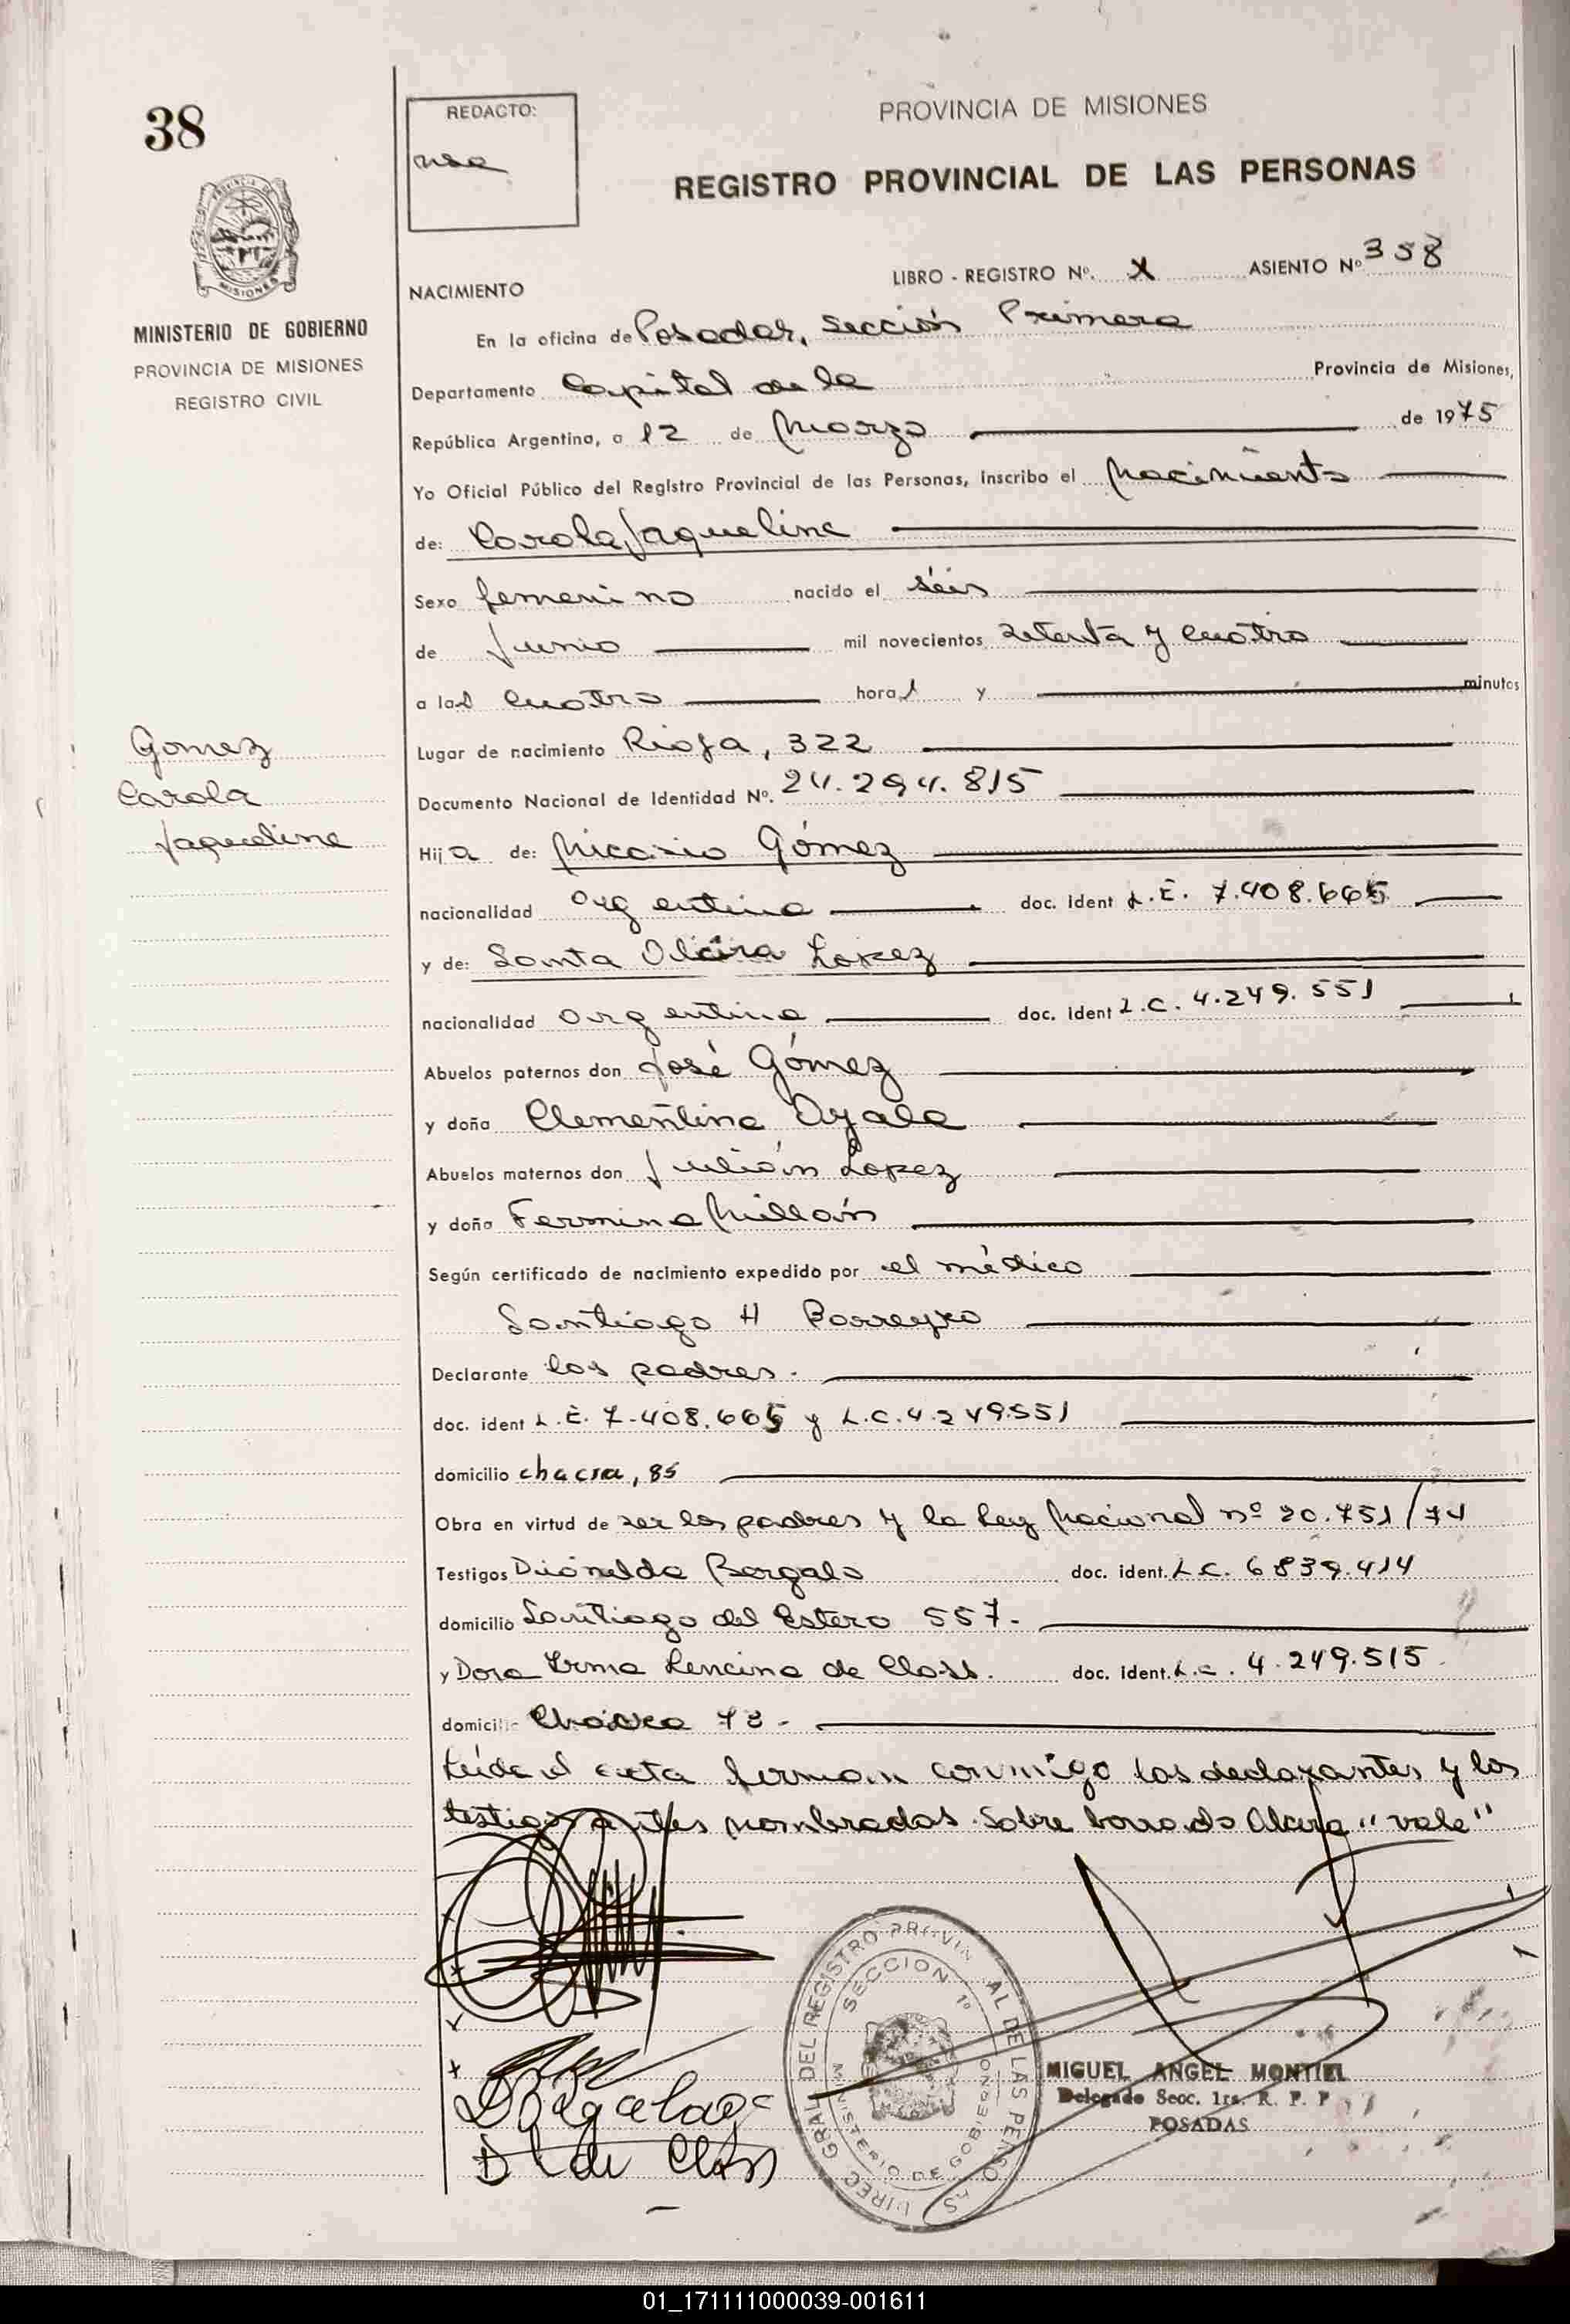 38
REDACTO:
PROVINCIA DE MISIONES
REGISTRO PROVINCIAL DE LAS PERSONAS
MISIONES
MINISTERIO DE GOBIERNO
PROVINCIA DE MISIONES
REGISTRO CIVIL
LIBRO - REGISTRO Nº. X ASIENTO Nº 358
NACIMIENTO
En la oficina de Posadas, Sección Primera
Departamento Capital de la Provincia de Misiones,
República Argentina, a 12 de Marzo de 1975
Yo Oficial Público del Registro Provincial de las Personas, Inscribo el Nacimiento
de: Carola Jaqueline
Sexo femenino nacido el séis
de Junio mil novecientos setenta y cuatro
a las cuatro horas y minutos
Gomez
Carola
Jaqueline
Lugar de nacimiento Rioja, 322
Documento Nacional de Identidad Nº. 24.294.815
Hija de: Nicasio Gómez
nacionalidad argentina doc. ident L.E. 7.408.665
y de: Santa Alcira Lopez
nacionalidad argentina doc. ident L.C. 4.249.551
Abuelos paternos don José Gómez
y doña Clementina Ayala
Abuelos maternos don Julián Lopez
y doña Fermina Millán
Según certificado de nacimiento expedido por el médico
Santiago H Barreyro
Declarante los padres.
doc. ident L.E. 7.408.665 y L.C. 4.249.551
domicilio chacra, 85
Obra en virtud de ser los padres y la Ley Nacional nº 20.751/74
Testigos Borgalo doc. ident. L.C. 6839.414
domicilio Santiago del Estero 557.
y Dora Irma Lencina de Class. doc. ident. L.C. 4.249.515
domicilio Chacra 73.
Leída el acta firman conmigo los declarantes y los
testigos antes nombrados. Sobre borrado Alcira "vale"
DIREC GRAL DEL REGISTRO PROVINCIAL DE LAS PERSONAS
SECCION 1º
MINISTERIO DE GOBIERNO
MIGUEL ANGEL MONTIEL
Delegado Secc. 1ra. R. P. P
POSADAS
D L de Class
01_171111000039-001611